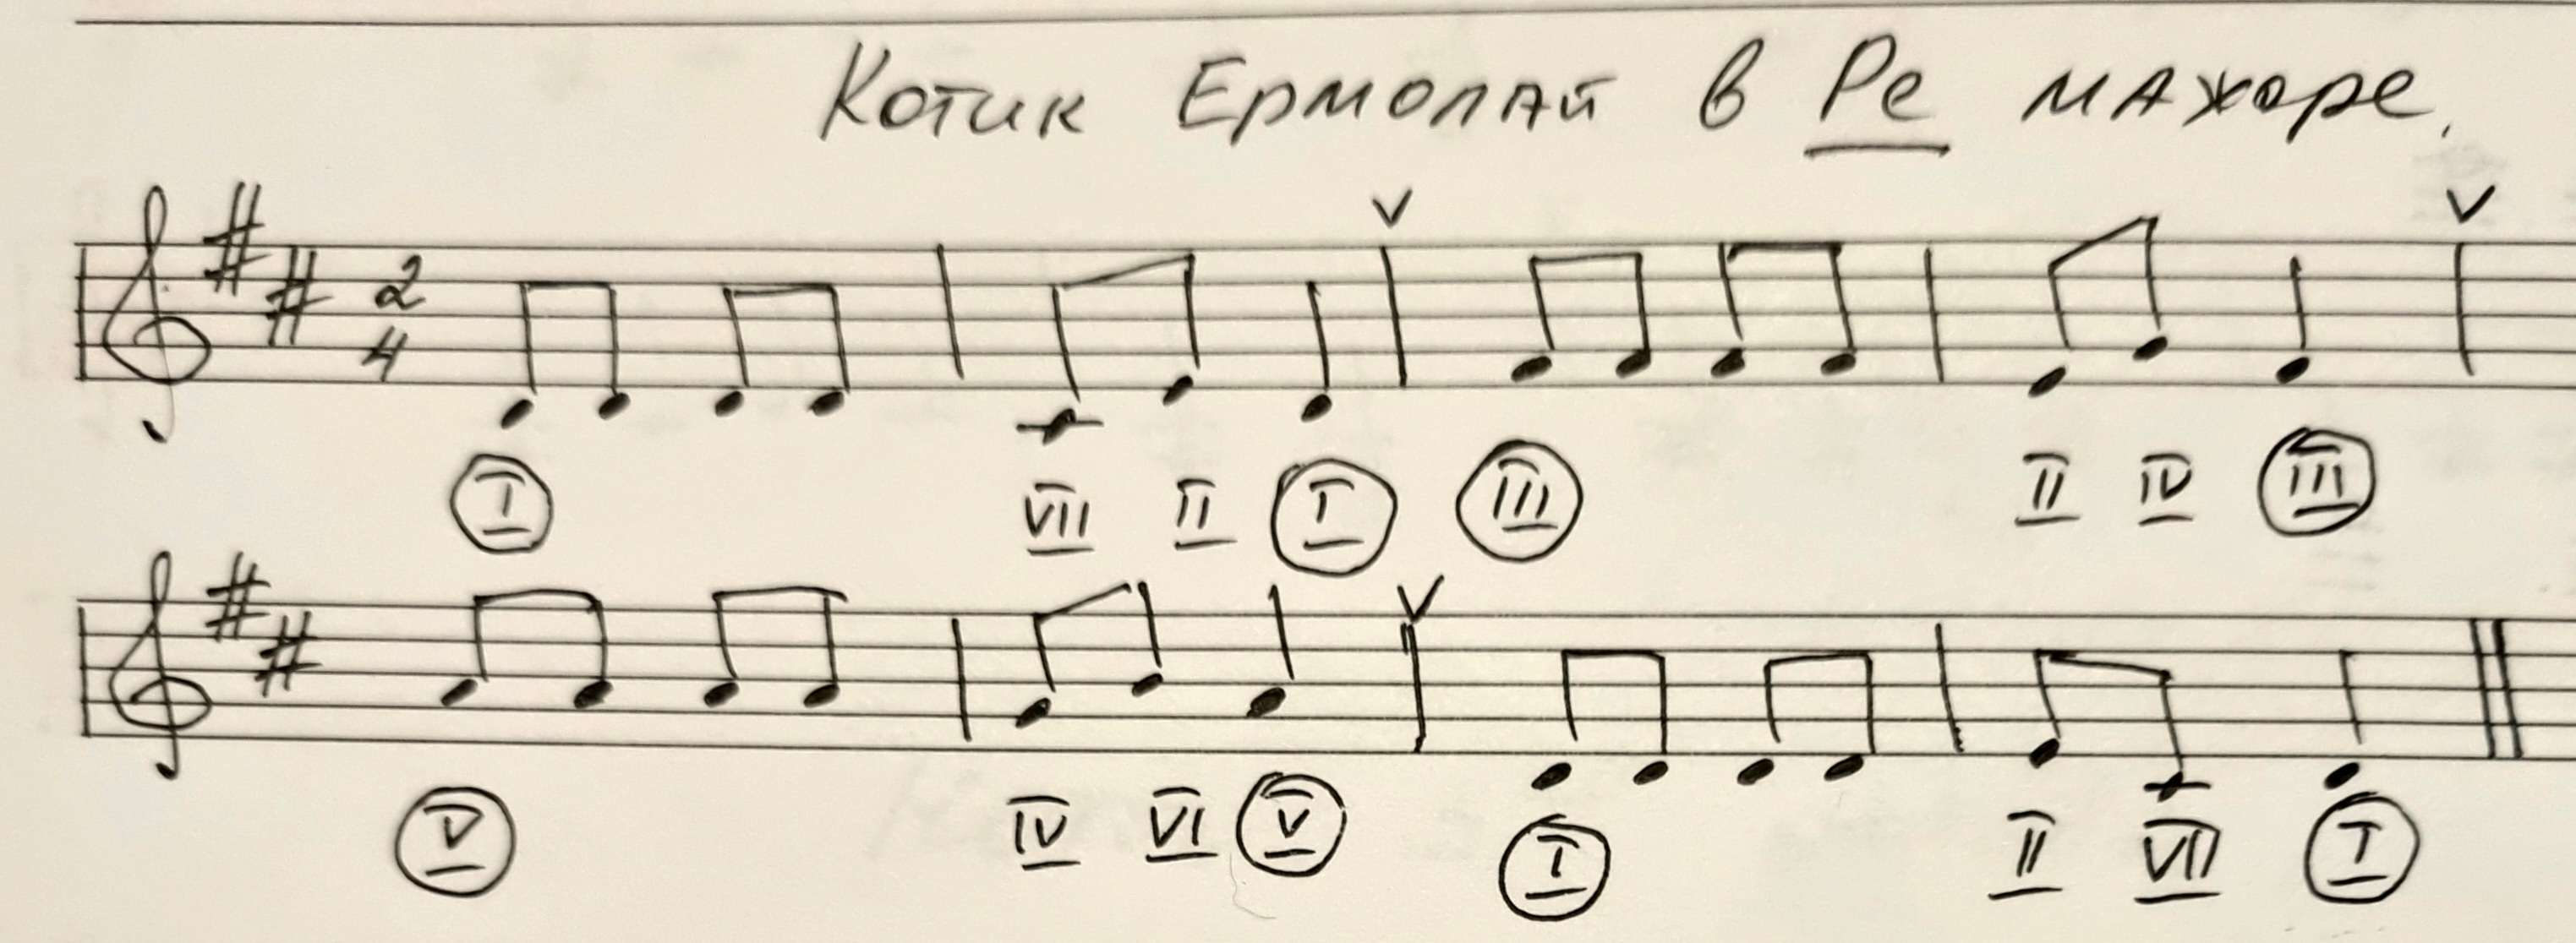 Котик Ермолай в Ре мажоре.
2
4
I VII II I III II IV III
V IV VI V I II VII I